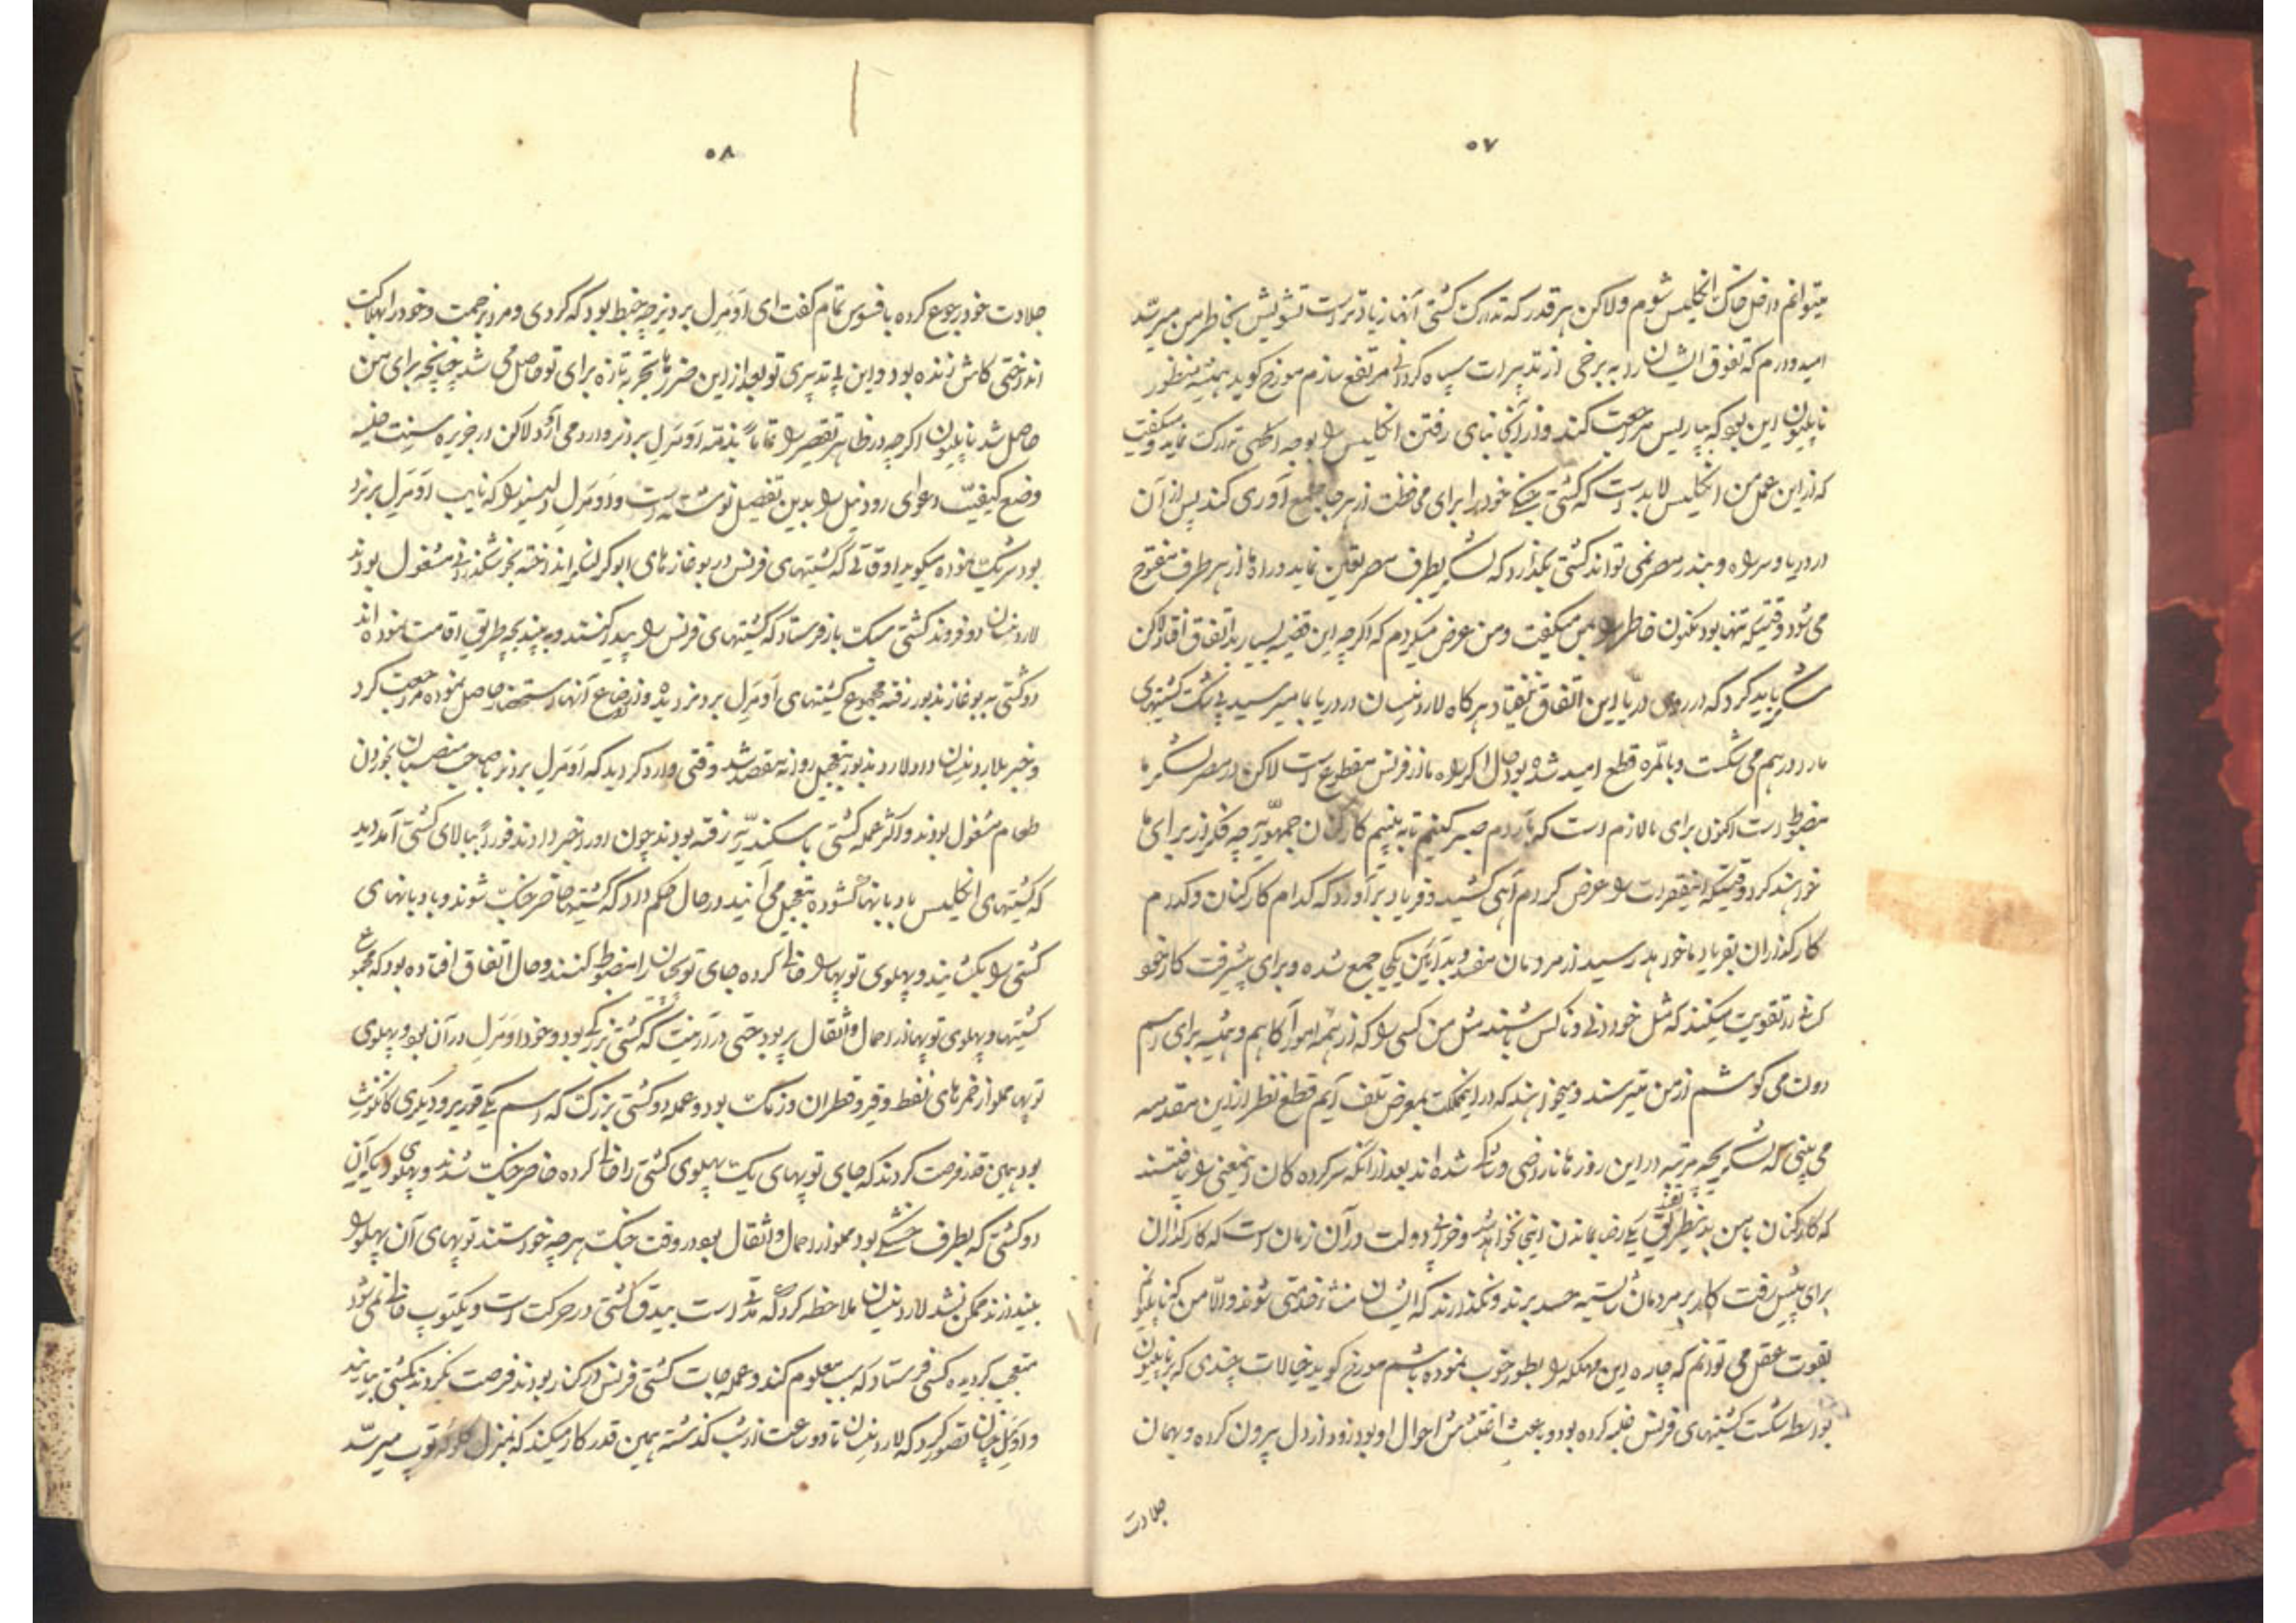 ۵۷
میتوانم داخل خاک انگلیس شوم و لاکن هر قدر که تدارک کشتی آنها زیادتر است تشویش بخاطر من میرسد
امیدوارم که تفوق ایشان را به برخی از تدبیرات سپاه کردانی مرتفع سازم مورخ کوید همیشه منظور
ناپلیون این بود که بپاریس مراجعت کند و از آنجا بنای رفتن انگلیس را بوجه اکملی تدارک نماید و میکفت
که از این عمل من انگلیس لابد است که کشتی جنکی خود را برای محافظت از هر جا جمع آوری کند پس از آن
در دریا و سر راه و بندر مصر نمی تواند کشتی بگذارد که لشکر بطرف مصر تعیین نماید و راه ما از هر طرف مفتوح
می شود وقتیکه تنها بود مکنون خاطر را بمن میکفت و من عرض میکردم که اکرچه این قضیه بسیار بد اتفاق افتاد لاکن
شکر باید کرد که در روی دریا این اتفاق نیفتاد هرکاه لارد نیسان در دریا بما میرسید بی شک کشتیهای
ما را درهم می شکست و بالمره قطع امید شده بود حال اکر راه ما از فرانس مقطوع است لاکن در مصر لشکر ما
مضبوط است اکنون برای ما لازم است که آرام صبر کنیم تا به بینیم کارکنان جمهوریه چه فکر از برای ما
خواهند کرد وقتیکه اینفقرات را عرض کردم آهی کشید و فریاد برآورد که کدام کارکنان و کدام
کارکذاران بفریاد ما خواهد رسید از مردمان مفسد بدآیین یکجا جمع شده و برای پیشرفت کار خود
کسانی را تقویت میکنند که مثل خود دنی و ناکس باشند مثل من کسی را که از همه امور آکاهم و همیشه برای رسم
دولت می کوشم از من میترسند و میخواهند که در این مملکت بمعرض تلف آیم قطع نظر از این مقدمه
می بینی که لشکر بچه مرتبه در این روزها ناراضی و شاکی شده اند بعد از آنکه سرکرده کان اینمعنی را یافتند
که کارکنان با من بدینطریق نفاق یکی راضی بماندن اینجا نخواهد شد و خرابی دولت در آن زمان است که کارکذاران
برای پیش رفت کار بر مردمان شایسته حسد برند و نکذارند که ایشان منشاء خدمتی شوند و الا من که ناپلیونم
بقوت عقل می توانم که چاره این مهلکه را بطور خوب نموده باشم مورخ کوید خیالات چندی که بر ناپلیون
بواسطه شکست کشتیهای فرنس غلبه کرده بود و باعث اغتشاش احوال او بود زود از دل بیرون کرده و بهمان
جلادت
۵۸
جلادت خود رجوع کرده با فسوس تمام کفت ای آدمرل بردنیز چه خبط بود که کردی و مرا بزحمت و خود را بهلاکت
انداختی کاش زنده بود و این بی تدبیری تو بعد از این ضررها تجربه تازه برای تو حاصل می شد چنانچه برای من
حاصل شد ناپلیون اکرچه در ظاهر تقصیر را تماماً بذمه آدمرل بردنیز وارد می آورد لاکن در جزیره سینت هلینه
وضع کیفیت دعوای رود نیل را بدین تفصیل نوشته است و آدمرل را که نایب آدمرل بردنیز
بود شریک نموده میکوید اوقاتی که کشتیهای فرنس در بوغازهای ابوکر لنکر انداخته بخوشکذرانی مشغول بودند
لارد نیسان دو فروند کشتی سبک بار فرستاد که کشتیهای فرنس را پیدا کنند و به بیند بچه طریق اقامت نموده اند
دو کشتی به بوغاز مذبور رفته مجموع کشتیهای آدمرل بردنیز دیده و از اوضاع آنها استحضار حاصل نموده مراجعت کرد
و خبر بلارد نیسان داد لارد مذبور بتعجیل روانه مقصد شد وقتی وارد کردید که آدمرل بردنیز با صاحب منصبان بخوردن
طعام مشغول بودند و اکثر عمله کشتی باسکندریه رفته بودند چون او را خبر دادند فوراً ببالای کشتی آمد دید
که کشتیهای انکلیس بادبانها کشوده بتعجیل می آیند در حال حکم داد که کشتیها حاضر جنک شوند و بادبانهای
کشتی را بکشایند و پهلوی توپها را خالی کرده جای توپچیان را مضبوط کنند و حال اتفاق افتاده بود که مجموع
کشتیها و پهلوی توپها از احمال و اثقال پر بود حتی در آرینت که کشتی بزرکی بود و خود آدمرل در آن بود پهلوی
توپها مملو از خمرهای نفط و قیر و قطران و زمکت بود و عمله دو کشتی بزرک که اسم یکی و دیکری
بود همین قدر فرصت کردند که جای توپهای یک پهلوی کشتی را خالی کرده حاضر جنک شدند و پهلوی دیکر آن
دو کشتی که بطرف خشکی بود مملو از احمال و اثقال بود در وقت جنک هرچه خواستند توپهای آن پهلو را
بیندازند ممکن نشد لارد نیسان ملاحظه کرد که مدتی است بیدق کشتی در حرکت است و یکتوپ خالی نمی شود
متعجب کردیده کسی فرستاد که سبب معلوم کند و عمله جات کشتی فرنس در کنار بودند فرصت نکردند بکشتی بیایند
و اول چنان تصور کرد که لارد نیسان تا دو ساعت از شب کذشته همین قدر کار میکند که بمنزل کلوله توپ میرسد